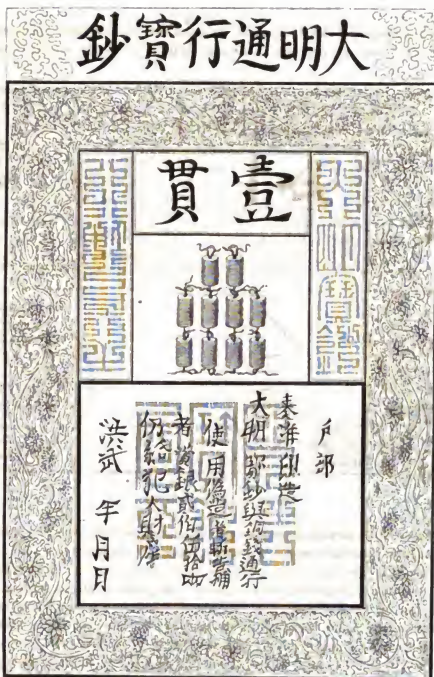 大明通行寶鈔
壹貫
大明寶鈔
戶部
奏准印造
大明 鈔與銅錢通行
使用偽造者斬告捕
者賞銀貳伯伍拾兩
仍給犯人財產
洪武 年 月 日